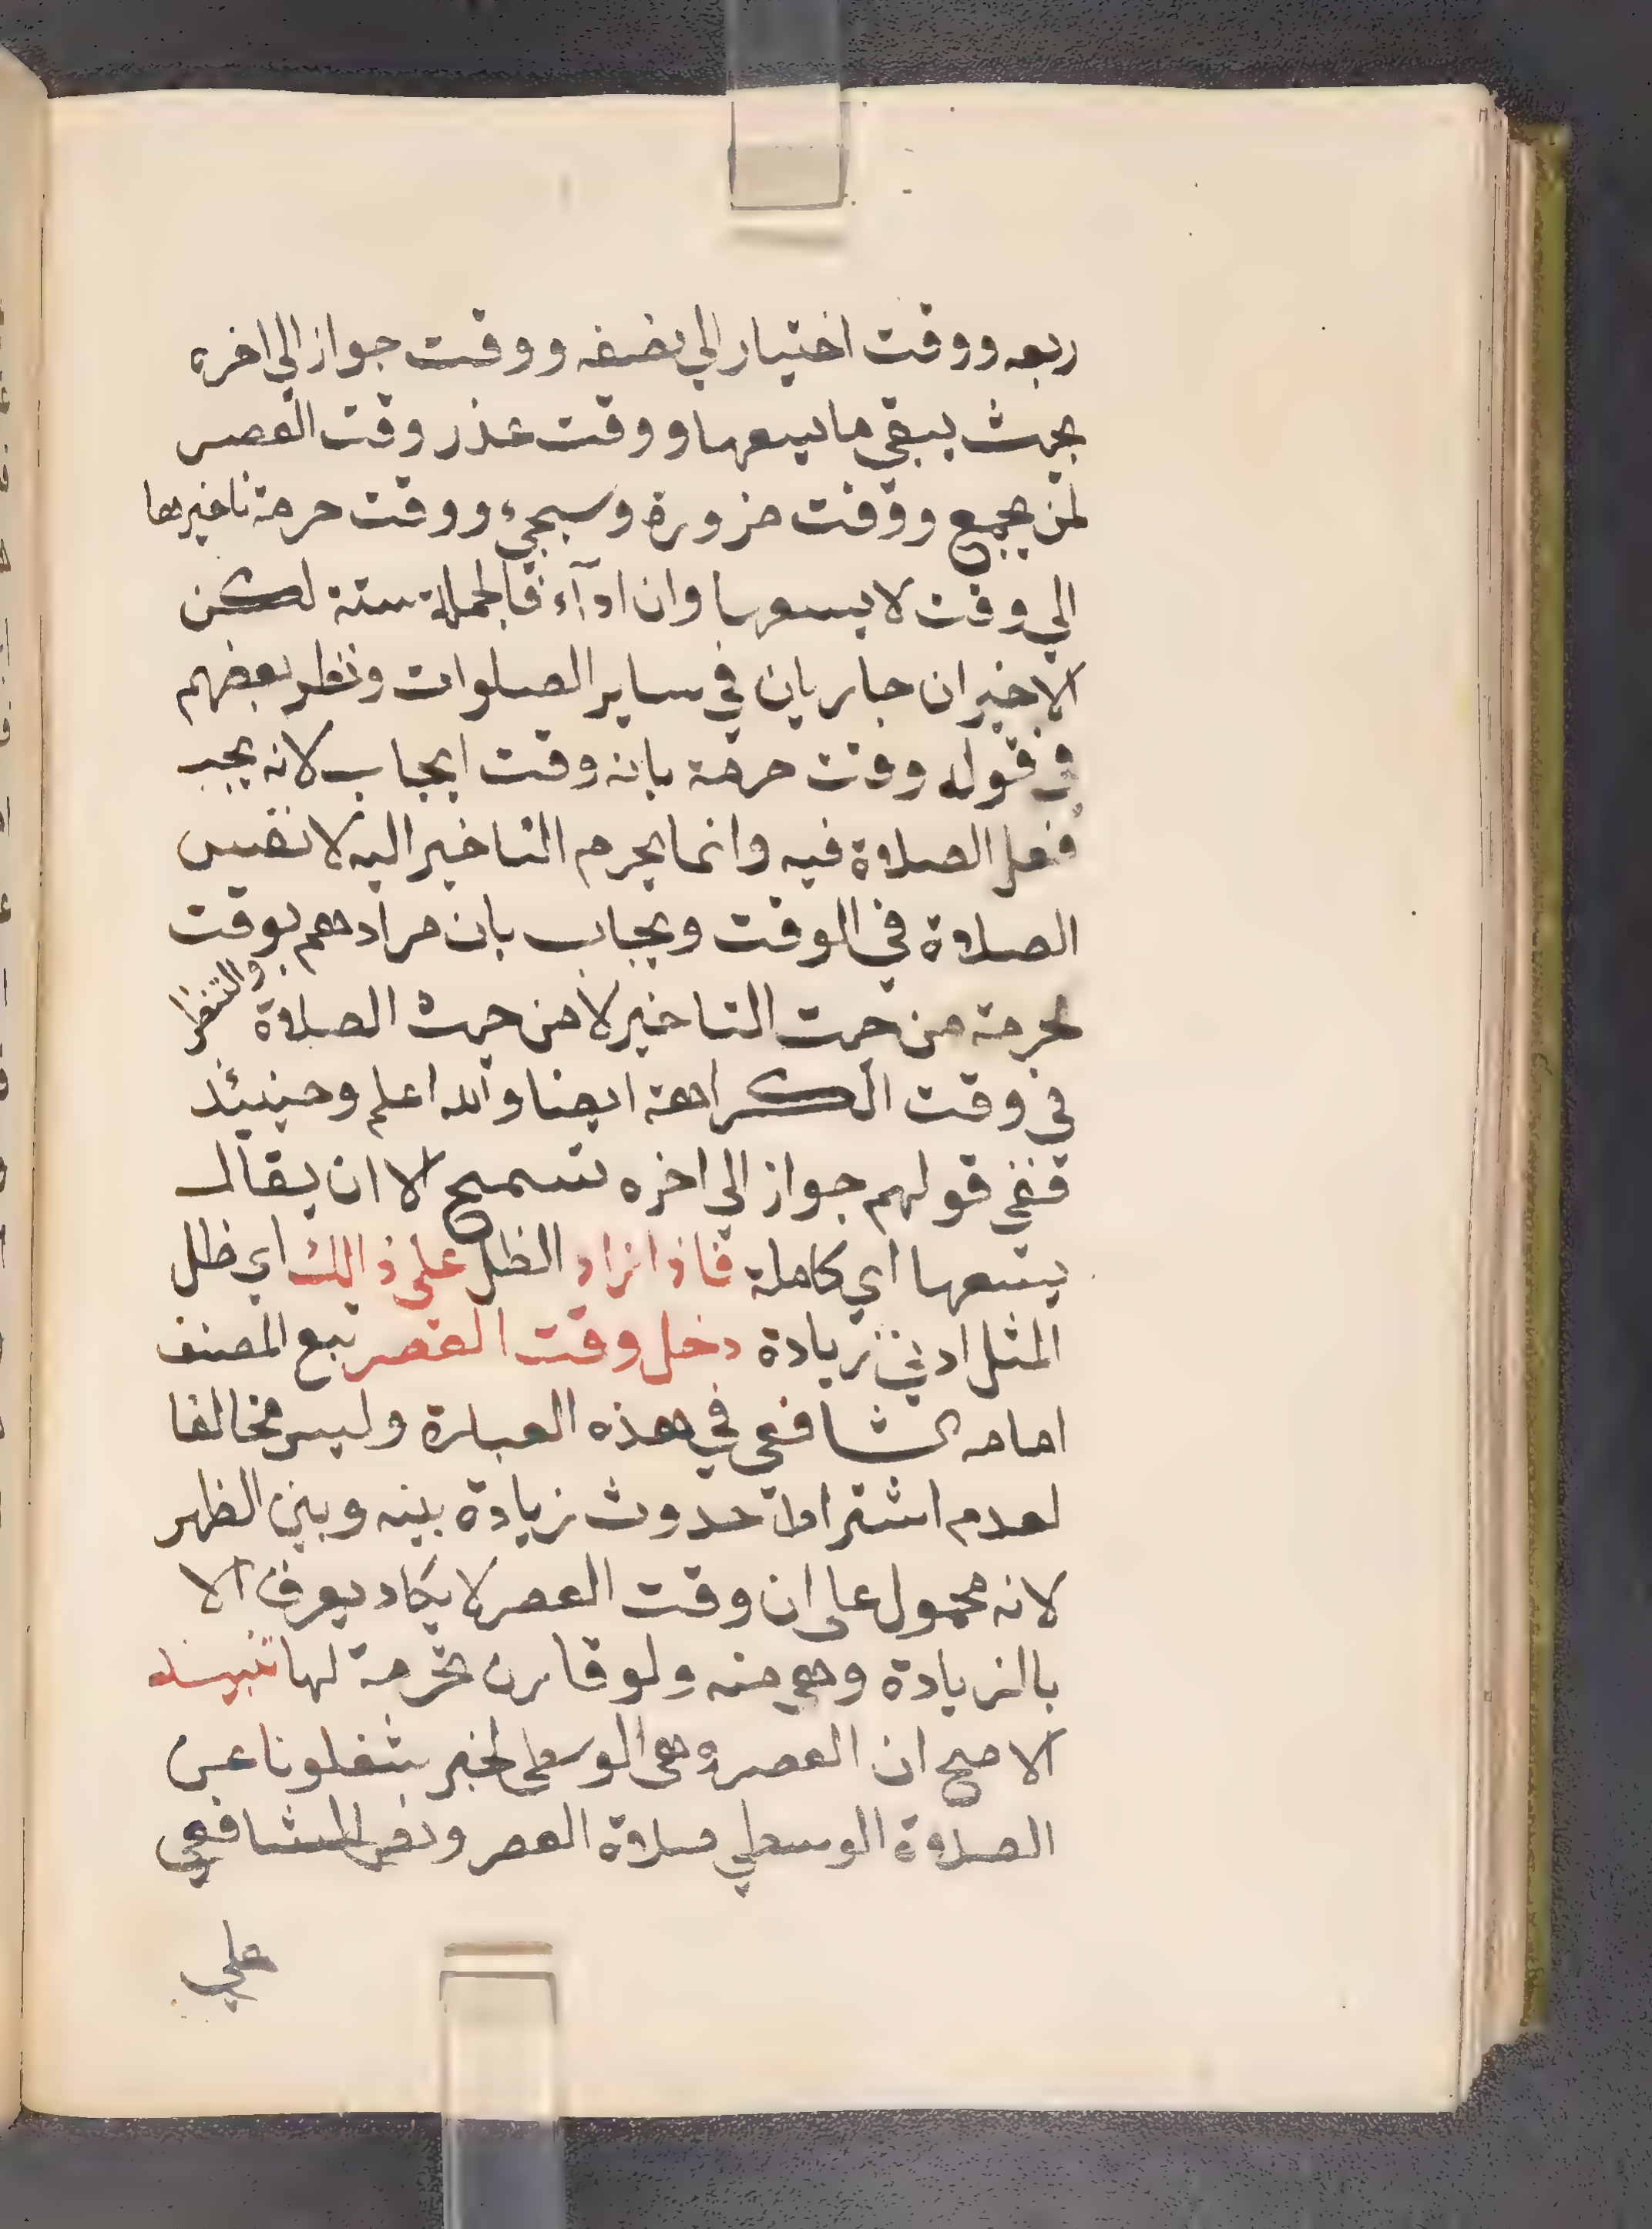 ربعه ووقت اختيار الي نصفه ووقت جواز الي اخره
بحيث يبقي ما يسعها ووقت عذر وقت العصر
لمن يجمع ووقت ضرورة وسيجيء ووقت حرمة تاخيرها
الي وقت لا يسعها وان ادآء فالجملة ستة لكن
الاخيران جاريان في ساير الصلوات ونظر بعضهم
في قول ووقت حرمة بانه وقت ايجاب لانه يجب
فعل الصلاة فيه وانما يحرم التاخير اليه لا نفس
الصلاة في الوقت ويجاب بان مرادهم بوقت
حرمة من حيث التاخير لا من حيث الصلاة والنظر
في وقت الكراهة ايضا والله اعلم وحينيئد
ففي قولهم جواز الي اخره تسمح الا ان يقال
يسعها اي كاملة فاذا زاد الظل علي ذالك اي ظل
المثل ادني زيادة دخل وقت العصر تبع المصنف
امامه الشافعي في هذه العبارة وليس مخالفا
لعدم اشتراط حدوث زيادة بينه وبين الظهر
لانه محمول على ان وقت العصر لا يكاد يعرف الا
بالزيادة وهي منه ولو قارن تحرمة لها تنبيه
الاصح ان العصر وهي الوسطى لخبر شغلونا عن
الصلاة الوسطي صلاة العصر ونص الشافعي
علي